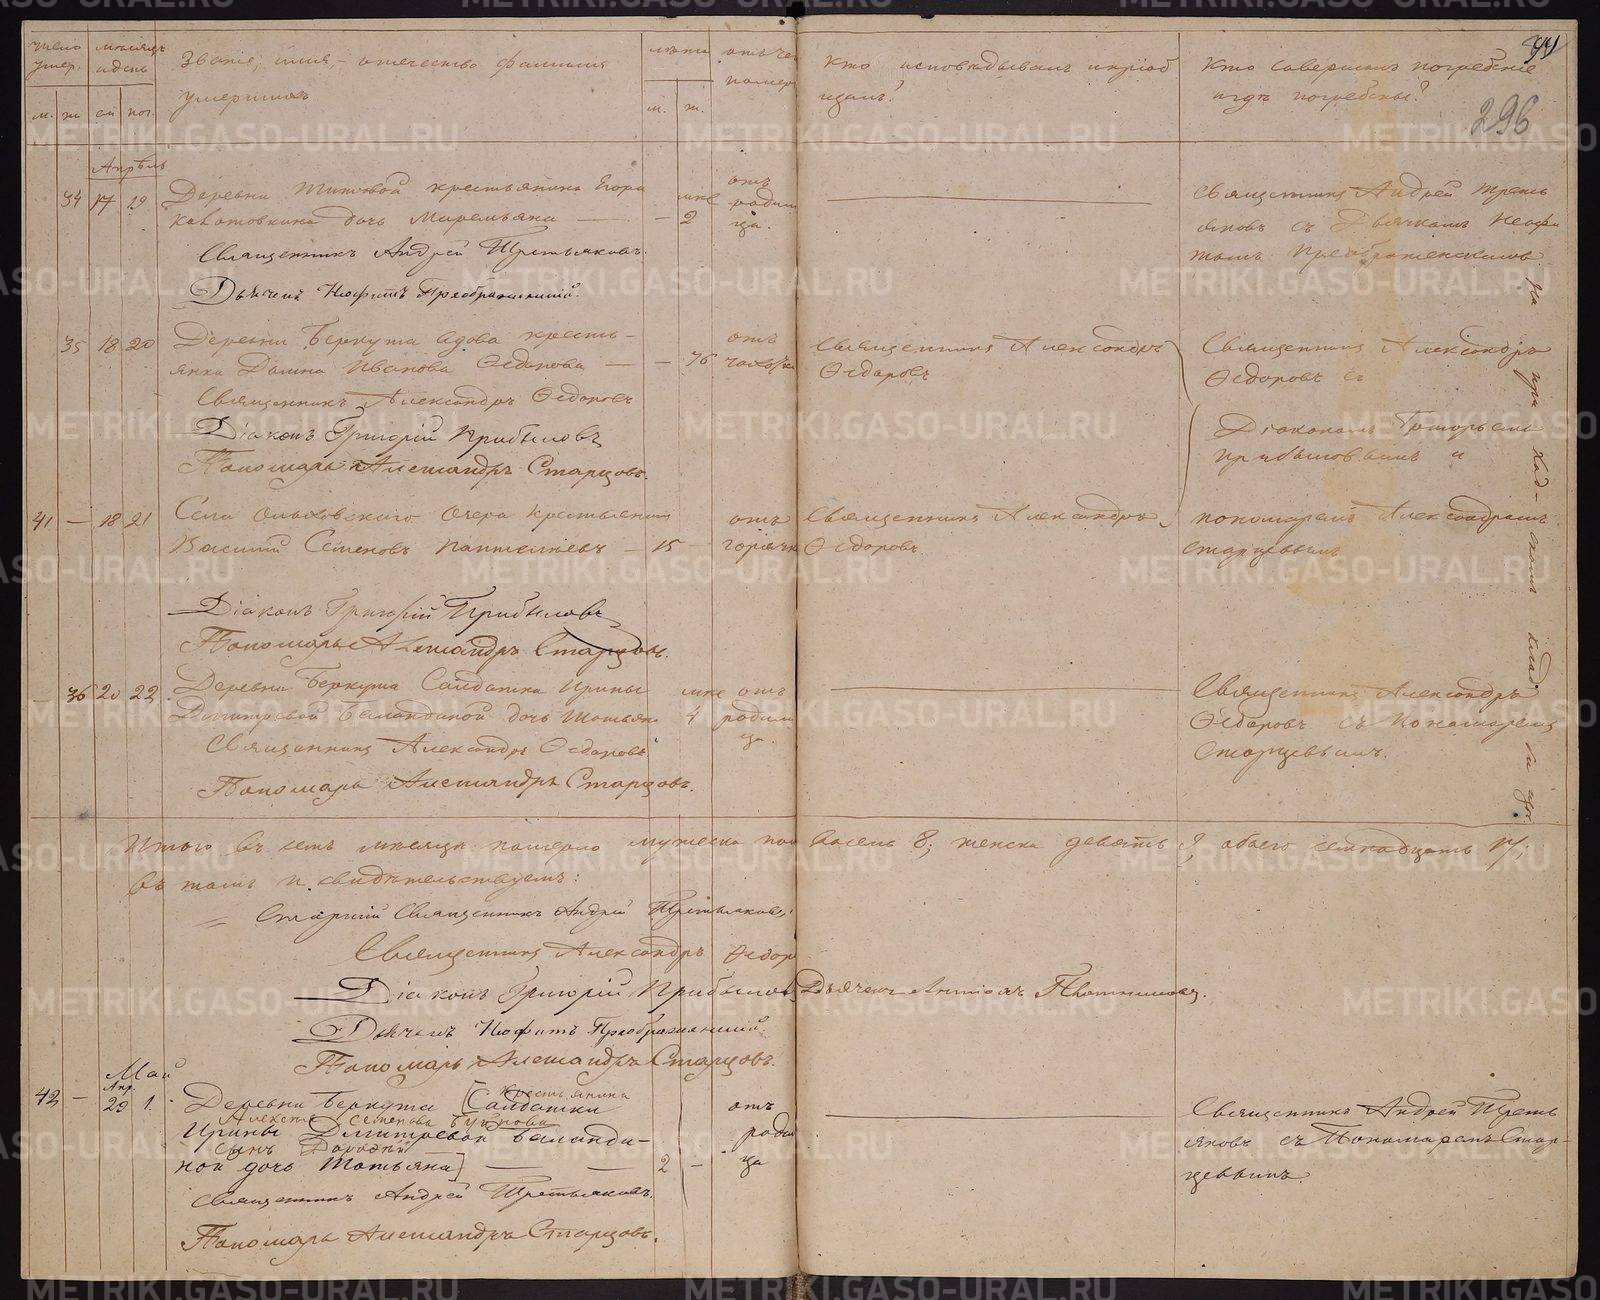 число умер. мѣсяцъ и день Званіе, имя, отчество фамилія умершихъ лѣта отъ чего померъ Кто исповѣдывалъ и пріобщалъ? Кто совершалъ погребеніе и гдѣ погребены?
м. ж. см. пог. м. ж.
296
Апрѣль
34 17 19 Деревни Титовой крестьянина Егора
дочь Маремьяна — 2 отъ родимца.
Священникъ Андрей Третьяковъ.
Дьячекъ Неофитъ Преображенскій.
Священникъ Андрей Третьяковъ съ Дьячкомъ Неофитомъ Преображенскимъ
на приходскомъ кладбищѣ
35 18 20 Деревни Беркута вдова крестьянка
Иванова Федорова — 76 отъ чахотки
Священникъ Александръ Федоровъ
Діаконъ Григорій Прибыловъ
Пономарь Александръ Старцовъ.
Священникъ Александръ
Федоровъ
Священникъ Александръ
Федоровъ съ
Діакономъ Григорьемъ
Прибыловымъ и
41 — 18 21 Села Ольховского Озера крестьянинъ
Василій Семеновъ Пантелѣевъ — 15 отъ горячки
Священникъ Александръ
Федоровъ
пономаремъ Александромъ
Старцевымъ
Діаконъ Григорій Прибыловъ
Пономарь Александръ Старцовъ.
— 36 20 22 Деревни Беркута Солдатки Ирины
Дмитревой Баландиной дочь Татьяна 4 отъ родимца.
Священникъ Александръ Федоровъ
Пономарь Александръ Старцовъ.
Священникъ Александръ
Федоровъ съ Пономаремъ
Старцевымъ.
Итого въ семъ мѣсяцѣ померло мужеска пола восемь 8; женска девять 9, обоего семнадцать 17;
въ томъ и свидѣтельствуемъ:
Старшій Священникъ Андрей Третьяковъ.
Священникъ Александръ Федоровъ
Діаконъ Григорій Прибыловъ Дьячекъ
Дьячекъ Неофитъ Преображенскій.
Пономарь Александръ Старцовъ.
Май
Апр.
42 — 29 1. Деревни Беркута [Солдатки
крестьянина
Алексѣя Семенова
Ирины Дмитревой Баланди-
сынъ
ной дочь Татьяна] — — 2 — отъ родимца
Священникъ Андрей Третьяковъ.
Пономарь Александръ Старцовъ.
Священникъ Андрей Треть
яковъ съ Пономаремъ Стар-
цевымъ.
METRIKI.GASO-URAL.RU